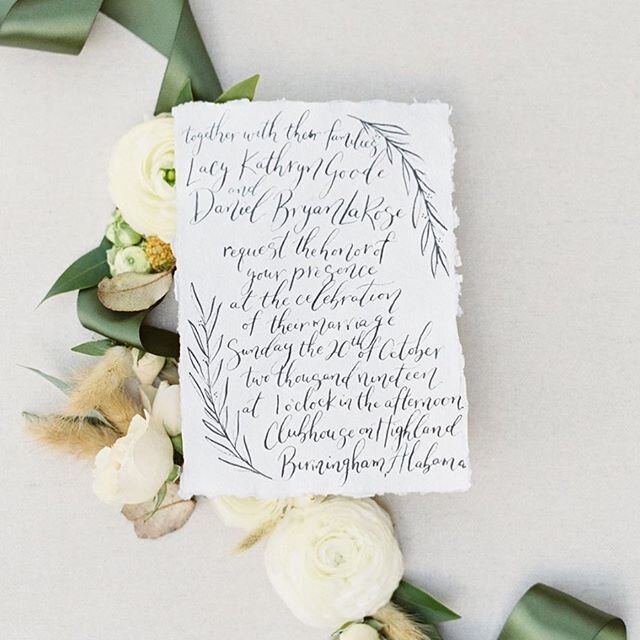 together with their families
Lacy Kathryn Goode
and
Daniel Bryan LaRose
request the honor of
your presence
at the celebration
of their marriage
Sunday the 20th of October
two thousand nineteen
at 1 o'clock in the afternoon
Clubhouse on Highland
Birmingham, Alabama